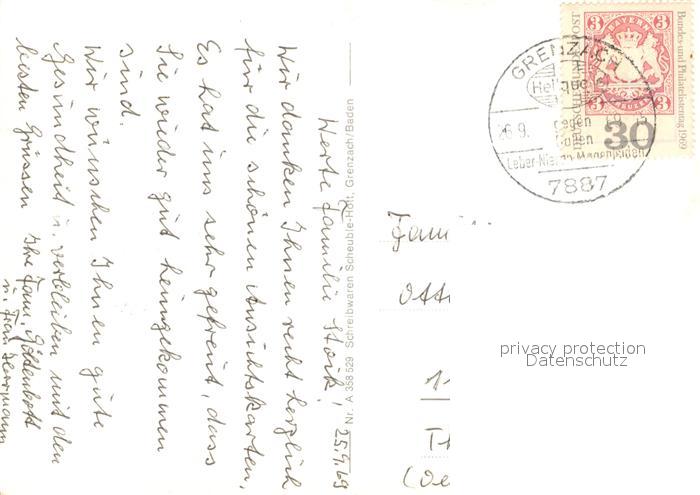 25.9.69
Werte Familie Stark!
Wir danken Ihnen recht herzlich
für die schönen Ansichtskarten.
Es hat uns sehr gefreut, dass
Sie wieder gut heimgekommen
sind.
Wir wünschen Ihnen gute
Gesundheit u. verbleiben mit den
besten Grüssen Ihre Fam.
u. Frau Herrmann
Nr. A 358 529 · Schreibwaren Scheuble-Hött, Grenzach/Baden
GRENZACH
Heilquelle
26.9. 69
gegen
Gallen
Leber-Nieren-Magenleiden
7887
3 BAYERN 3
3 3
DEUTSCHE BUNDESPOST
Bundes- und Philatelistentag 1969
30
Fami
Otto
privacy protection
Datenschutz